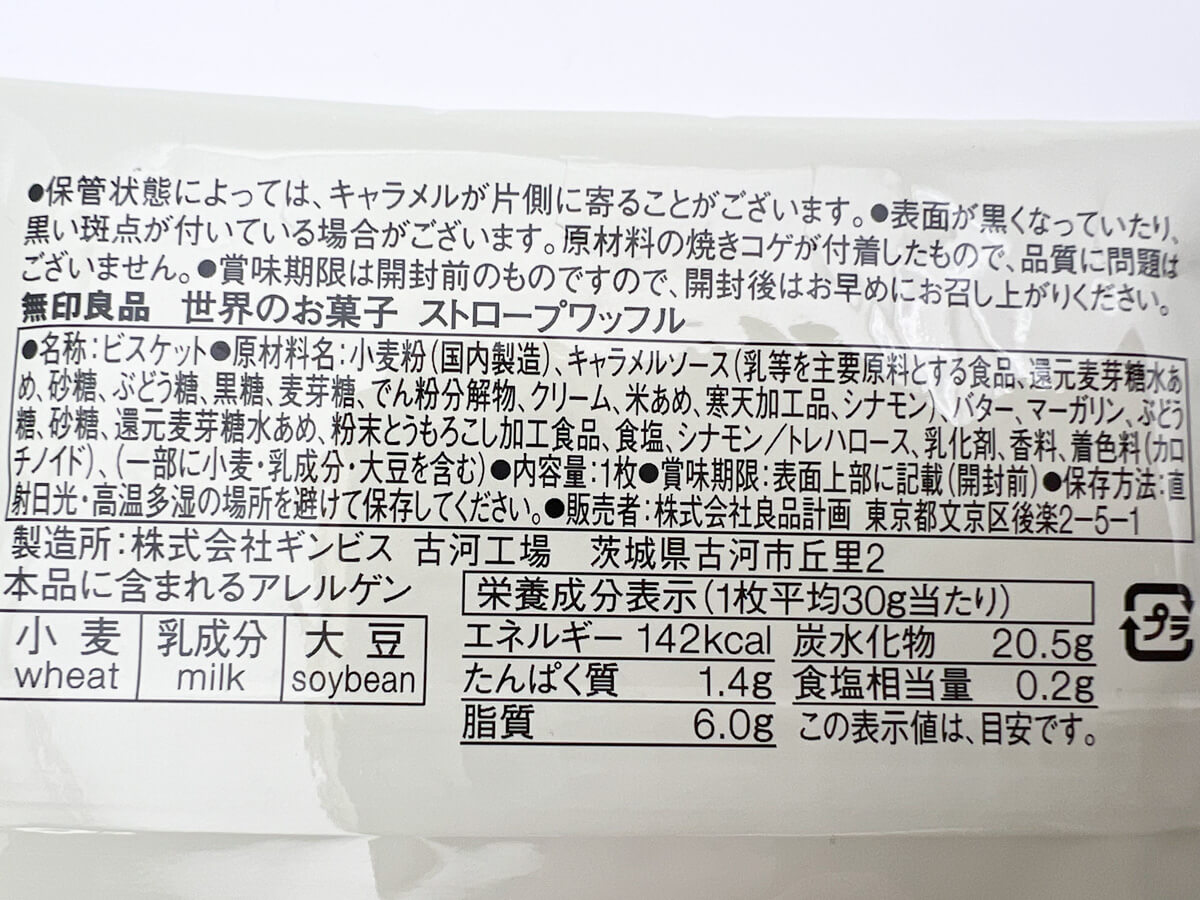 ●保管状態によっては、キャラメルが片側に寄ることがございます。●表面が黒くなっていたり、
黒い斑点が付いている場合がございます。原材料の焼きコゲが付着したもので、品質に問題は
ございません。●賞味期限は開封前のものですので、開封後はお早めにお召し上がりください。
無印良品 世界のお菓子 ストロープワッフル
●名称:ビスケット●原材料名:小麦粉(国内製造)、キャラメルソース(乳等を主要原料とする食品、還元麦芽糖水あ
め、砂糖、ぶどう糖、黒糖、麦芽糖、でん粉分解物、クリーム、米あめ、寒天加工品、シナモン)、バター、マーガリン、ぶどう
糖、砂糖、還元麦芽糖水あめ、粉末とうもろこし加工食品、食塩、シナモン/トレハロース、乳化剤、香料、着色料(カロ
チノイド)、(一部に小麦・乳成分・大豆を含む)●内容量:1枚●賞味期限:表面上部に記載(開封前)●保存方法:直
射日光・高温多湿の場所を避けて保存してください。●販売者:株式会社良品計画 東京都文京区後楽2-5-1
製造所:株式会社ギンビス 古河工場 茨城県古河市丘里2
本品に含まれるアレルゲン
小麦 乳成分 大豆
wheat milk soybean
栄養成分表示(1枚平均30g当たり)
エネルギー 142kcal 炭水化物 20.5g
たんぱく質 1.4g 食塩相当量 0.2g
脂質 6.0g この表示値は、目安です。
プラ